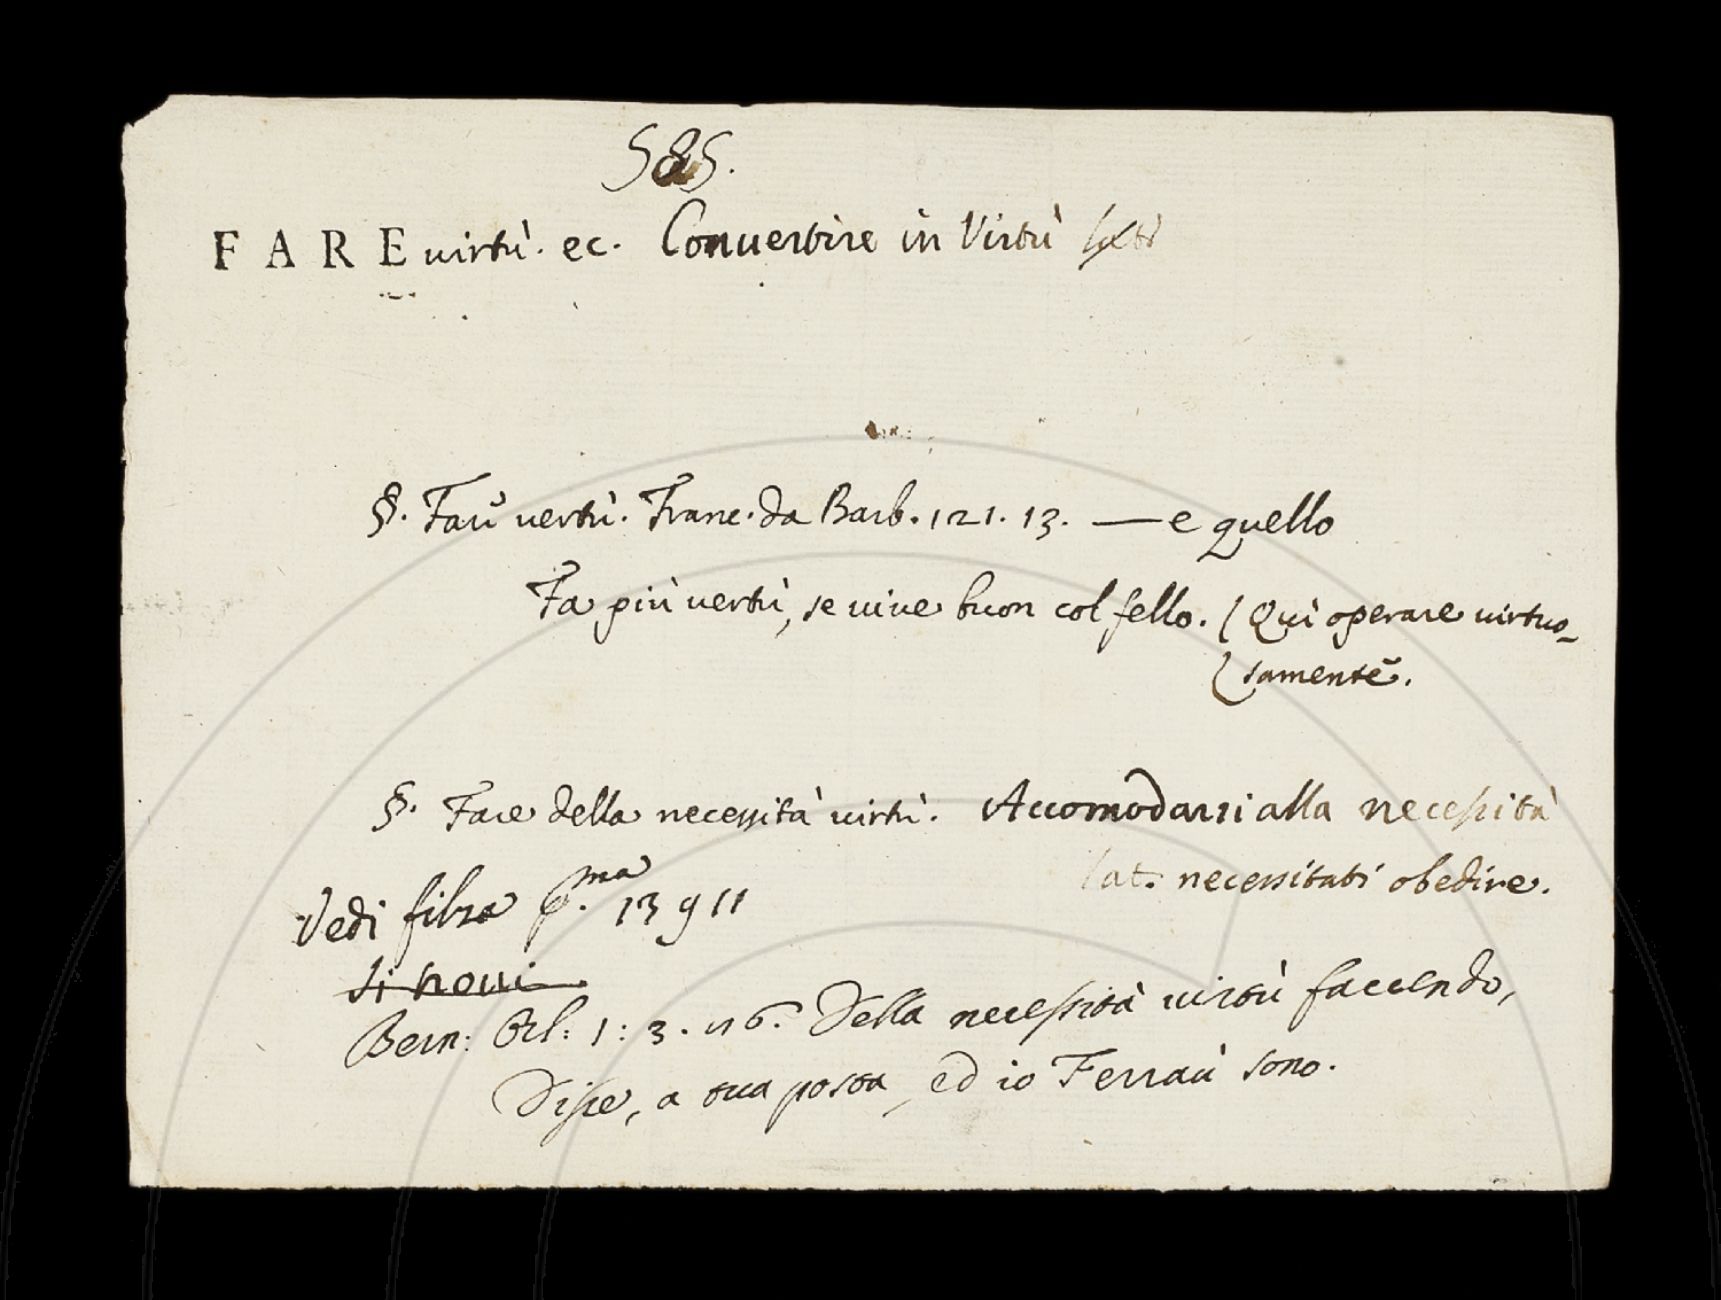 585.
FARE virtù. ec. Convertire in Virtù
§. Far vertù. Franc. da Barb. 121. 13. — e quello
Fa più vertù, se vive buon col fello. (Qui operare virtuo-
samente.
§. Fare della necessità virtù. Accomodarsi alla necessità
lat. necessitati obedire.
Vedi filza p.ma 13911
Bern: Orl: 1: 3. 76. Della necessità virtù faccendo,
Disse, a tua posta, ed io Ferraù sono.